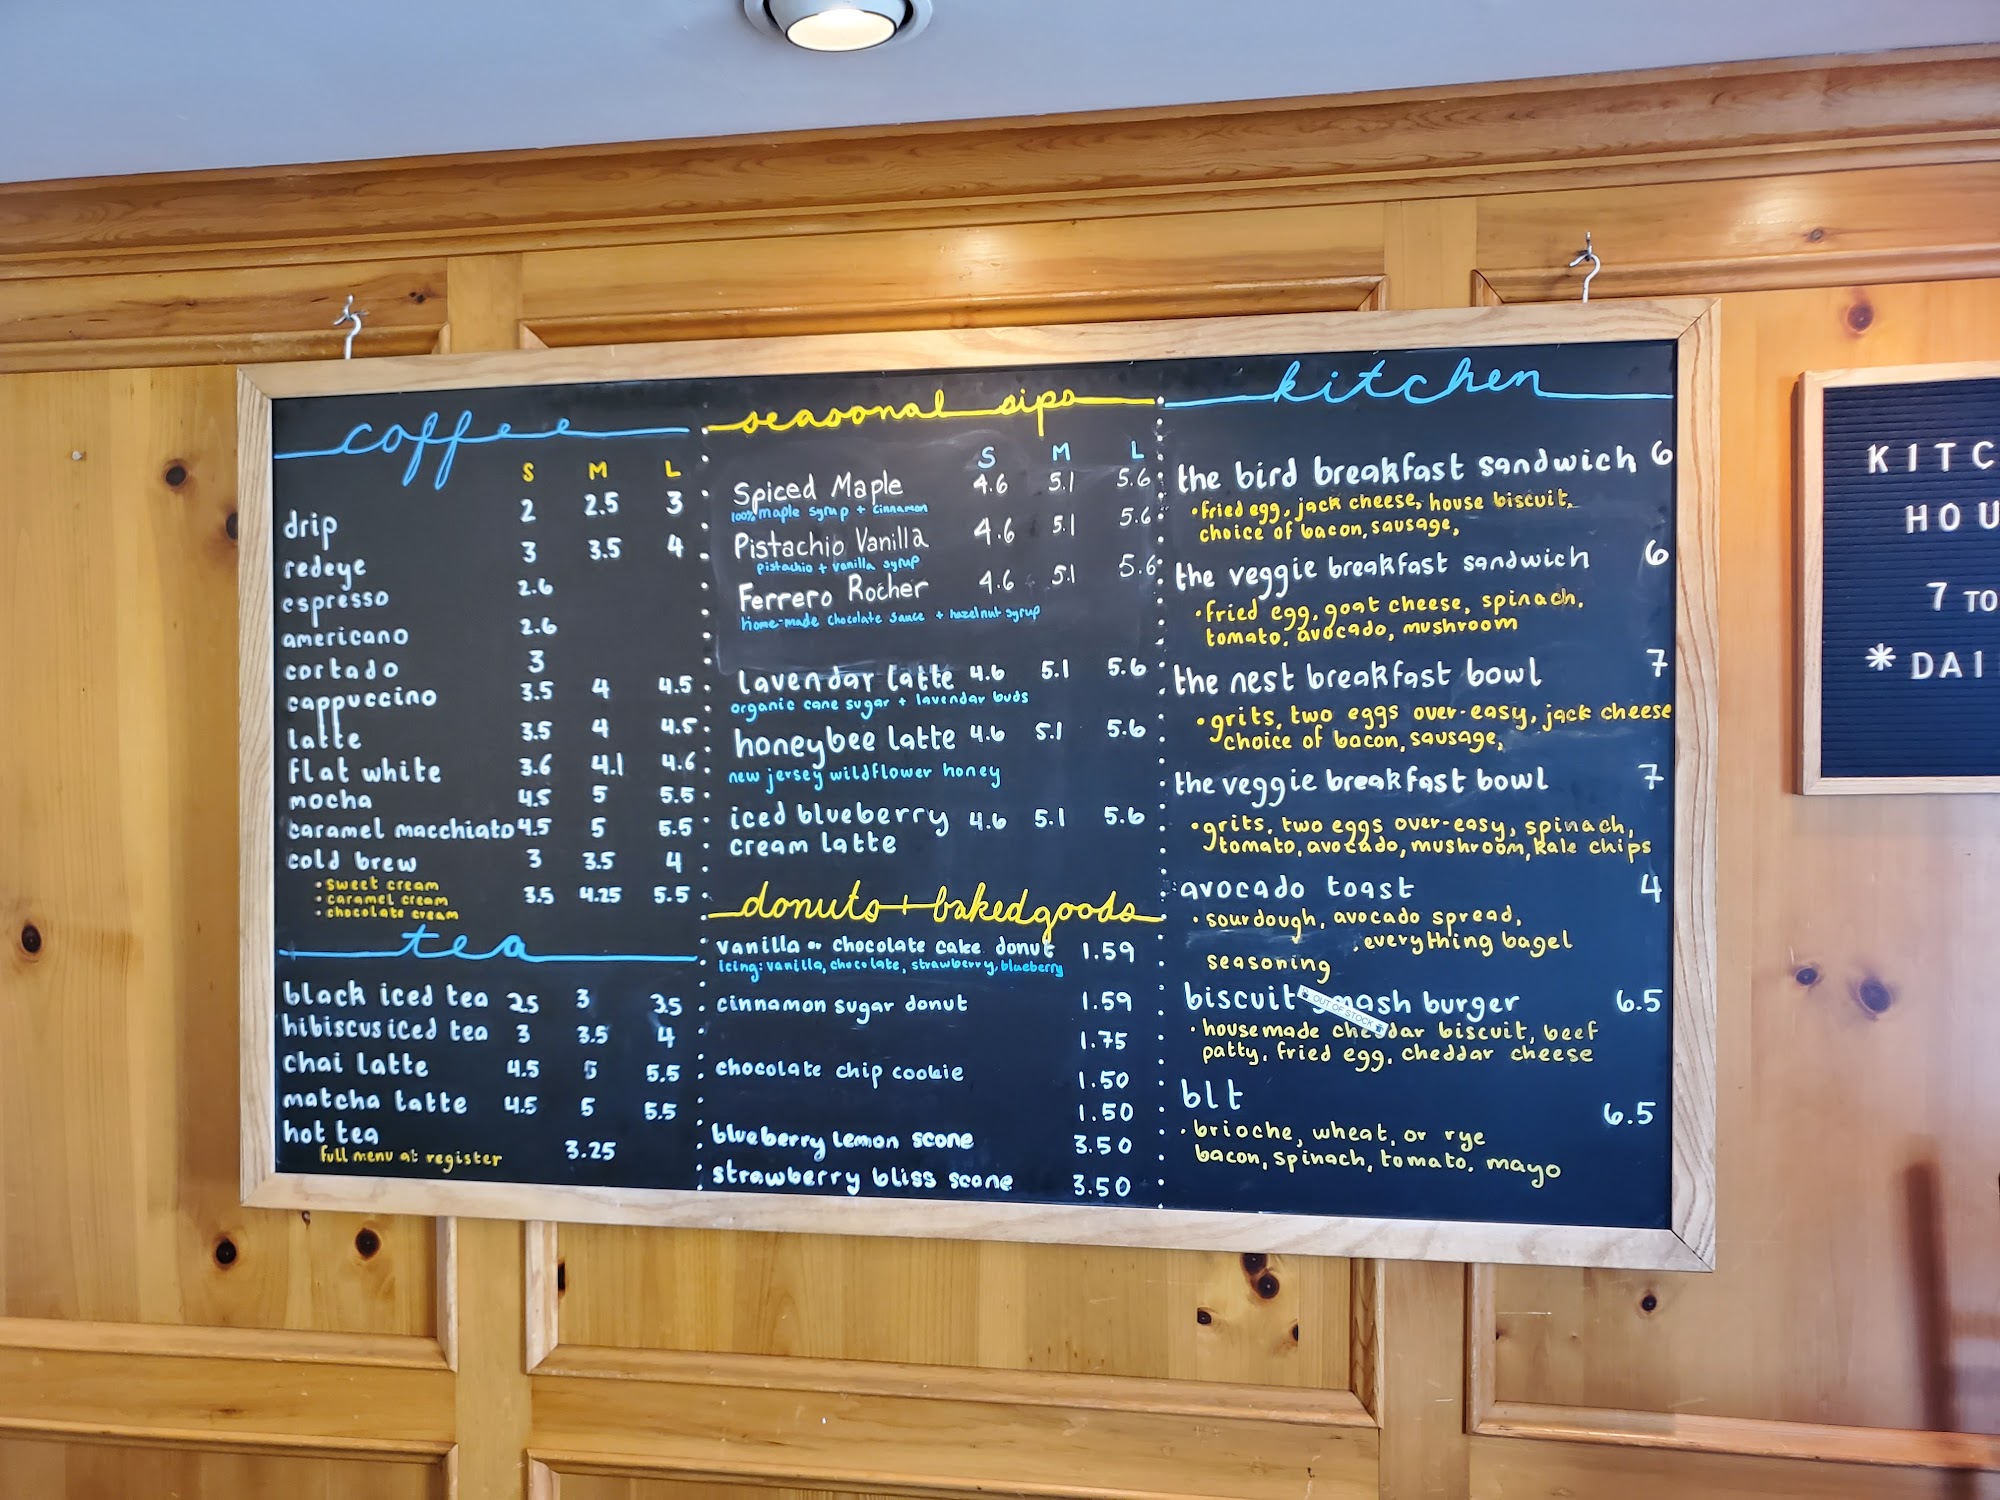 coffee
S M L
drip 2 2.5 3
redeye 3 3.5 4
espresso 2.6
americano 2.6
cortado 3
cappuccino 3.5 4 4.5
latte 3.5 4 4.5
flat white 3.6 4.1 4.6
mocha 4.5 5 5.5
caramel macchiato 4.5 5 5.5
cold brew 3 3.5 4
• sweet cream
• caramel cream 3.5 4.25 5.5
• chocolate cream
tea
black iced tea 2.5 3 3.5
hibiscus iced tea 3 3.5 4
chai latte 4.5 5 5.5
matcha latte 4.5 5 5.5
hot tea
full menu at register 3.25
seasonal sips
S M L
Spiced Maple 4.6 5.1 5.6
100% maple syrup + cinnamon
Pistachio Vanilla 4.6 5.1 5.6
pistachio + vanilla syrup
Ferrero Rocher 4.6 5.1 5.6
home-made chocolate sauce + hazelnut syrup
lavendar latte 4.6 5.1 5.6
organic cane sugar + lavendar buds
honeybee latte 4.6 5.1 5.6
new jersey wildflower honey
iced blueberry 4.6 5.1 5.6
cream latte
donuts + baked goods
vanilla or chocolate cake donut 1.59
icing: vanilla, chocolate, strawberry, blueberry
cinnamon sugar donut 1.59
1.75
chocolate chip cookie 1.50
1.50
blueberry lemon scone 3.50
strawberry bliss scone 3.50
kitchen
the bird breakfast sandwich 6
• fried egg, jack cheese, house biscuit,
choice of bacon, sausage,
the veggie breakfast sandwich 6
• fried egg, goat cheese, spinach,
tomato, avocado, mushroom
the nest breakfast bowl 7
• grits, two eggs over-easy, jack cheese
choice of bacon, sausage,
the veggie breakfast bowl 7
• grits, two eggs over-easy, spinach,
tomato, avocado, mushroom, kale chips
avocado toast 4
• sourdough, avocado spread,
, everything bagel
seasoning
biscuit smash burger 6.5
OUT OF STOCK
• housemade cheddar biscuit, beef
patty, fried egg, cheddar cheese
blt 6.5
• brioche, wheat, or rye
bacon, spinach, tomato, mayo
KITC
HOU
7 TO
* DAI